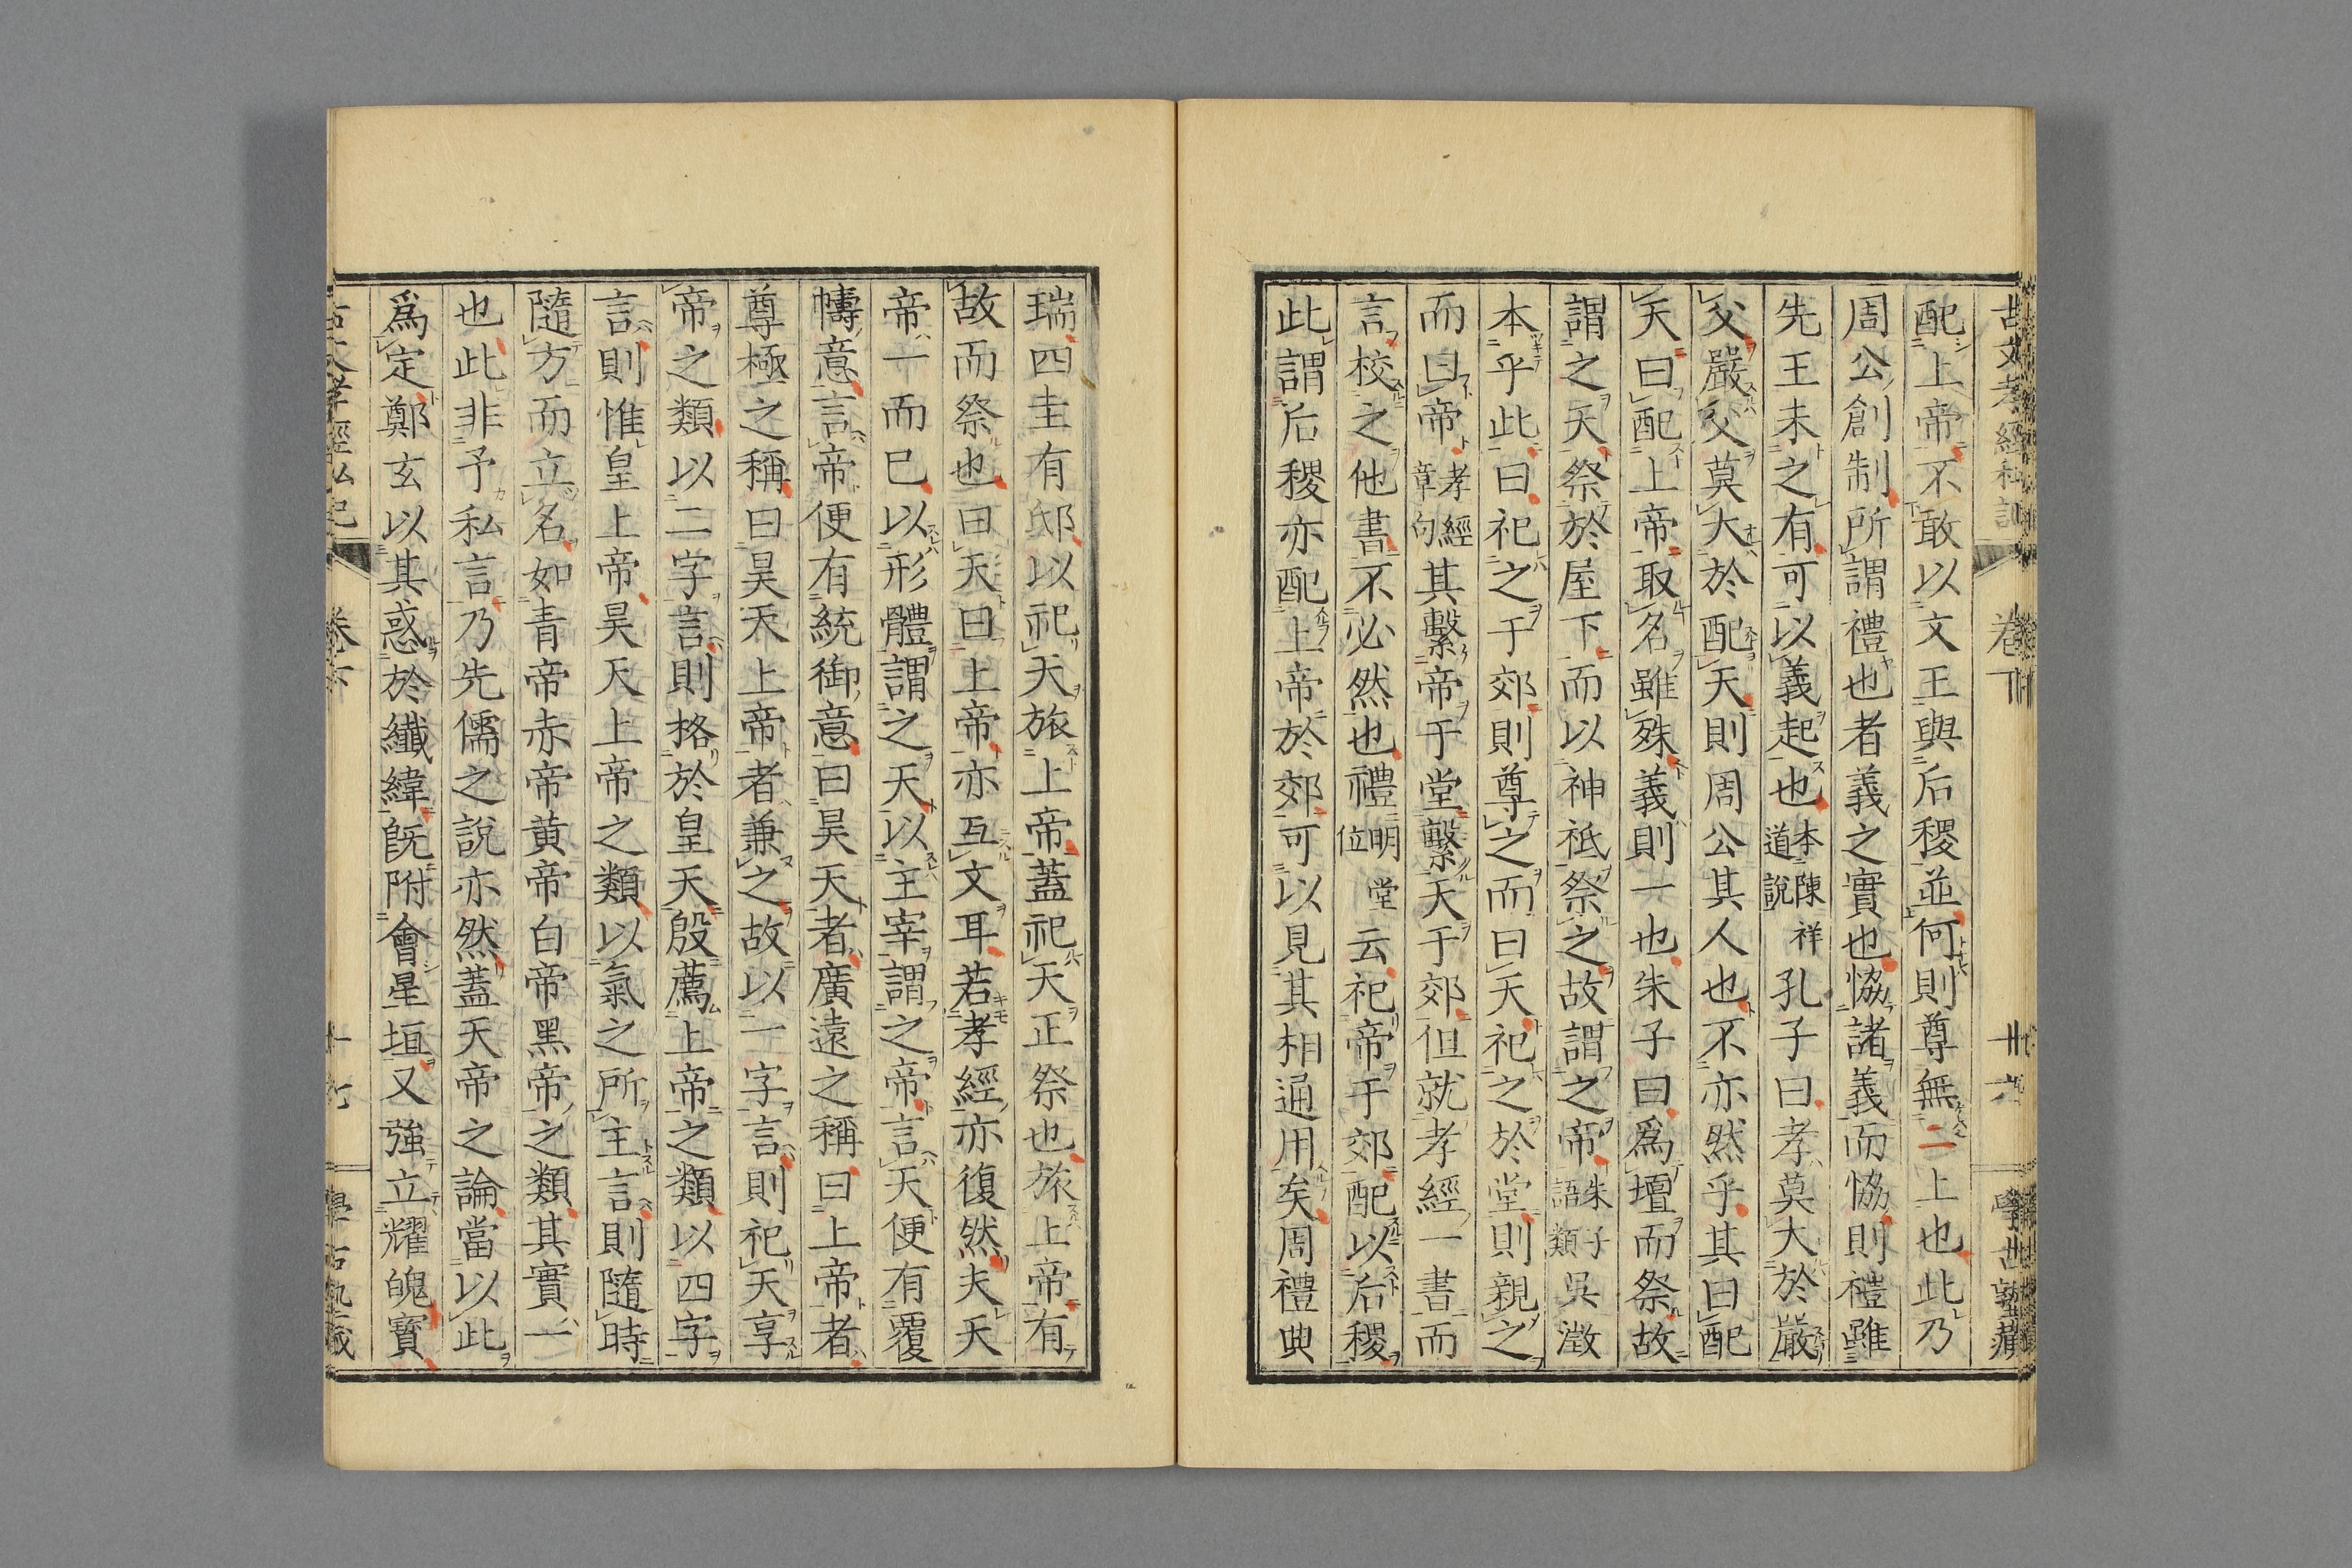 配上帝不敢以文王與后稷並何則尊無二上也此乃
周公創制所謂禮也者義之實也恊諸義而恊則禮雖
先王未之有可以義起也本陳祥道説孔子曰孝莫大於嚴
父嚴父莫大於配天則周公其人也不亦然乎其曰配
天曰配上帝取名雖殊義則一也朱子曰爲壇而祭故
謂之天祭於屋下而以神祇祭之故謂之帝朱子語類吳澂
本乎此曰祀之于郊則尊之而曰天祀之於堂則親之
而曰帝孝經章句其繫帝于堂繫天于郊但就孝經一書而
言校之他書不必然也禮明堂位云祀帝于郊配以后稷
此謂后稷亦配上帝於郊可以見其相通用矣周禮典
瑞四圭有邸以祀天旅上帝蓋祀天正祭也旅上帝有
故而祭也曰天曰上帝亦互文耳若孝經亦復然夫天
帝一而已以形體謂之天以主宰謂之帝言天便有覆
幬意言帝便有統御意曰昊天者廣遠之稱曰上帝者
尊極之稱曰昊天上帝者兼之故以一字言則祀天享
帝之類以二字言則格於皇天殷薦上帝之類以四字
言則惟皇上帝昊天上帝之類以氣之所主言則隨時
隨方而立名如青帝赤帝黄帝白帝黑帝之類其實一
也此非予私言乃先儒之說亦然蓋天帝之論當以此
爲定鄭玄以其惑於纖緯旣附會星垣又強立耀魄寶